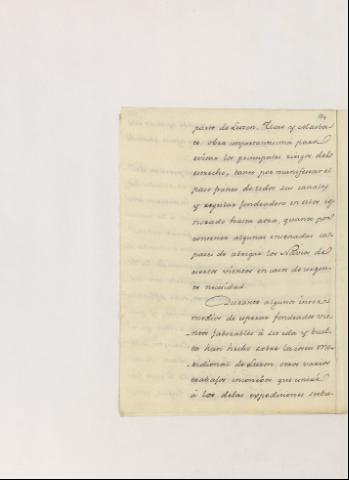 parte de Luzon, Ticao y Masba-
te obra importantisima para
evitar los principales riesgos del
estrecho, tanto por manifestar el
paso franco de todos sus canales
y seguros fondeaderos en ellos ig-
norado hasta aora, quanto por
contener algunas ensenadas ca-
paces de abrigar los Navios de
ciertos vientos en caso de urgen-
te necesidad.
Durante algunos interme-
medios de esperar fondeados vien-
tos favorables à su ida y buel-
ta han hecho sobre la costa me-
ridional de Luzon otros varios
trabajos conocidos que unirà
à los de las expediciones suba-